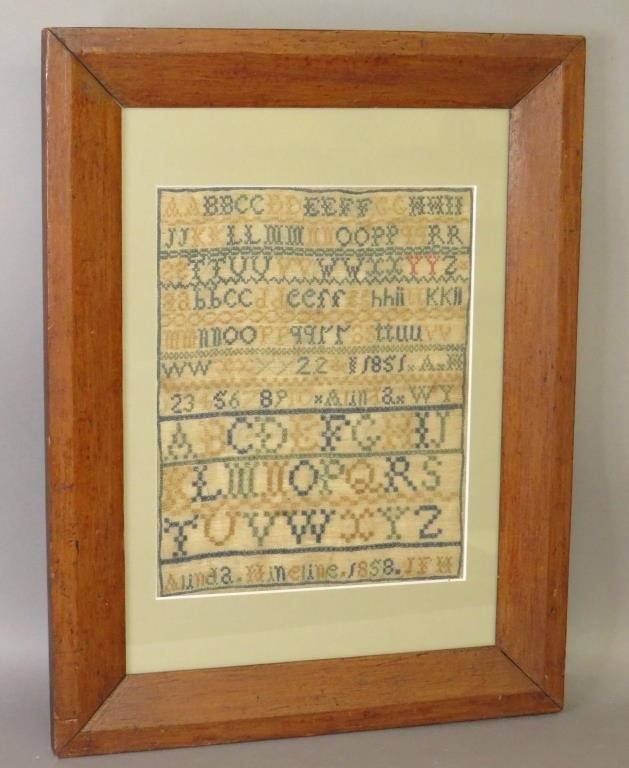 AABBCCDDEEFFGGHHII
JJKKLLMMNNOOPPQQRR
SSTTUUVVWWXXYYZ
aabbccddeeffgghhiiKKll
mmnnooppqqrrssttuuvv
WW 22 1851 A H
23 4 56 89 Alinda WY
ABCDEFGHIJ
KLMNOPQRS
TUVWXYZ
Alinda. Hineline. 1858. JFH